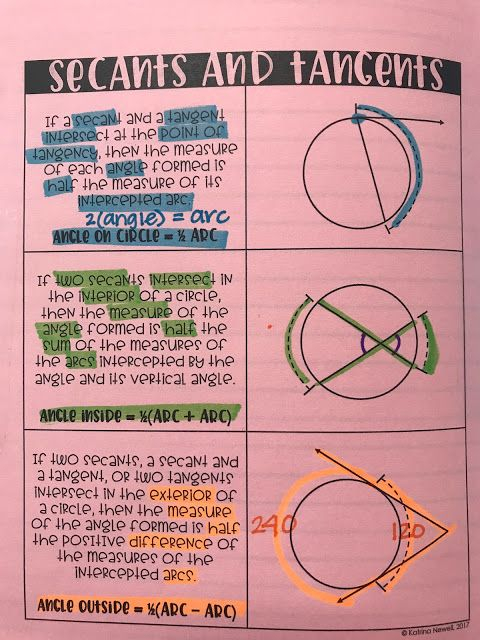 SECANTS AND TANGENTS
If a secant and a tangent
intersect at the point of
tangency, then the measure
of each angle formed is
half the measure of its
intercepted arc.
2(angle) = arc
ANGLE ON CIRCLE = ½ ARC
If two secants intersect in
the interior of a circle,
then the measure of the
angle formed is half the
sum of the measures of
the arcs intercepted by the
angle and its vertical angle.
ANGLE INSIDE = ½(ARC + ARC)
If two secants, a secant and
a tangent, or two tangents
intersect in the exterior of
a circle, then the measure
of the angle formed is half
the positive difference of
the measures of the
intercepted arcs.
ANGLE OUTSIDE = ½(ARC – ARC)
240
120
© Katrina Newell, 2017